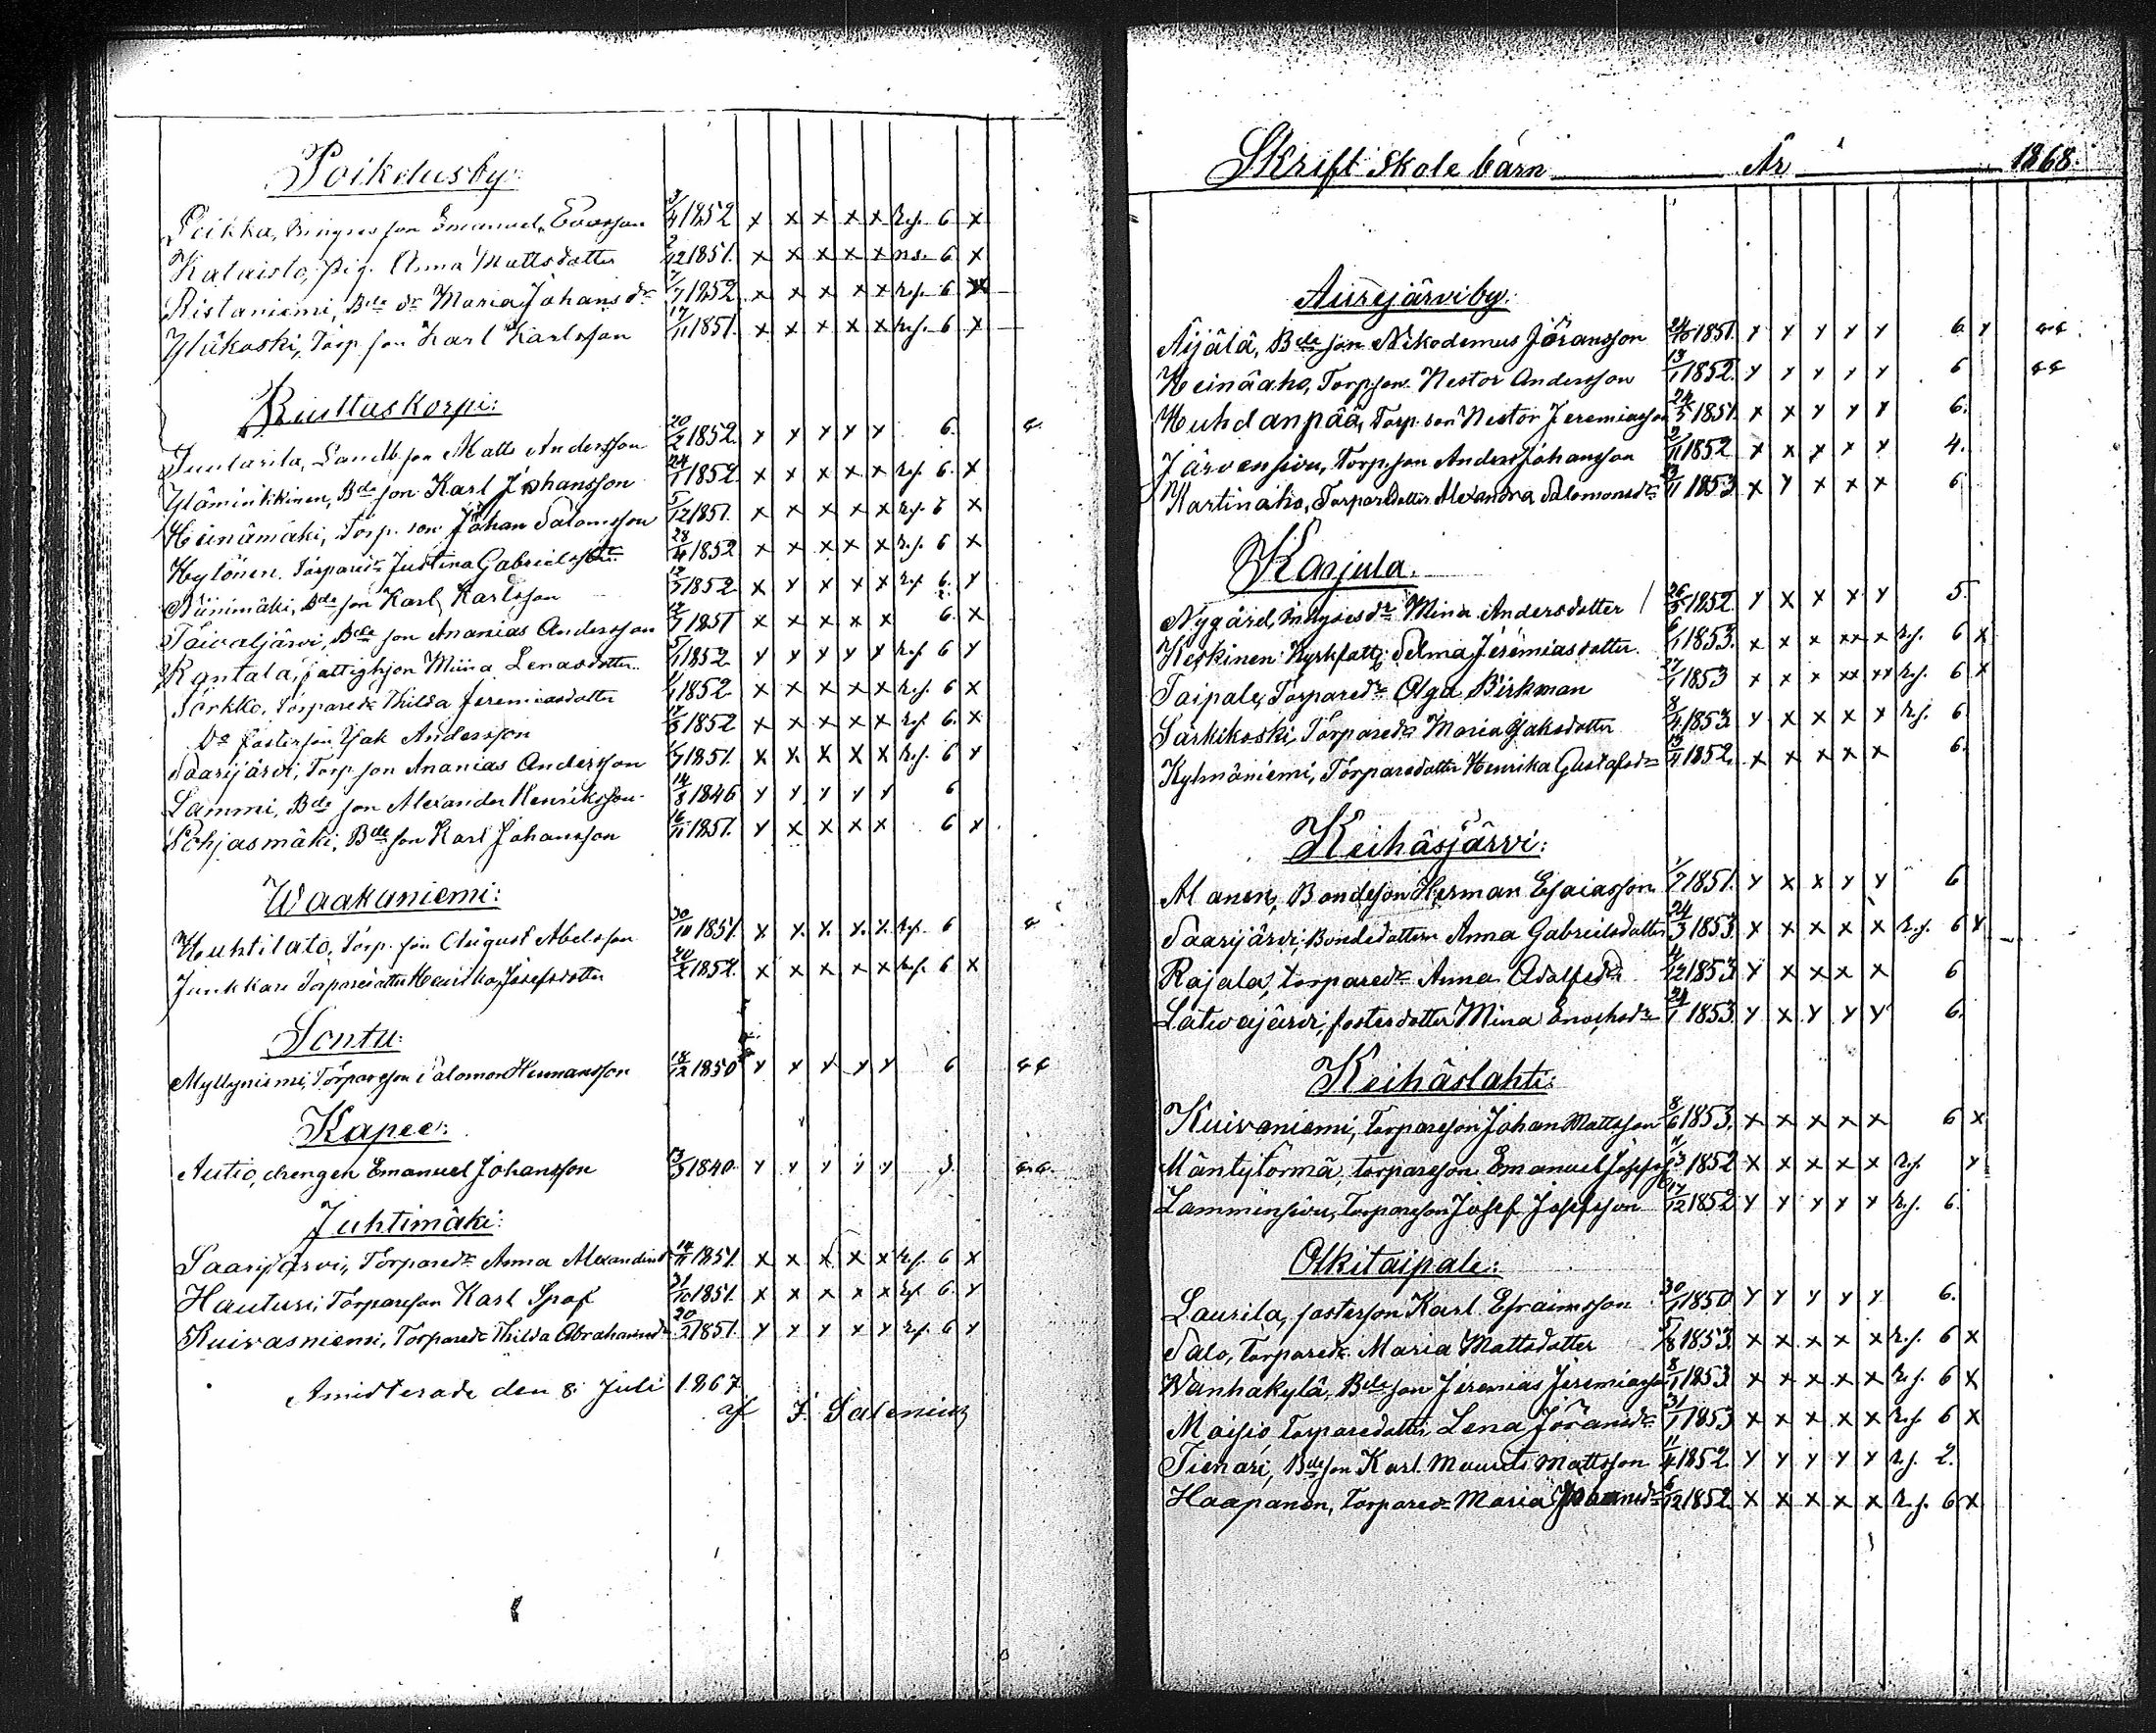 Poikelusby:
Poikka, Emanuel 3/4 1852 x x x x x 6 x
Kalaisto, pig. Anna Mattsdotter 2/12 1851. x x x x x ns. 6 x
Ristaniemi, Bde dr Maria Johansdr 7/7 1852 x x x x x 6 x
Ylikoski, Torp son Karl Karlsson 17/11 1851. x x x x x 6 x
Riuttuskorpi:
Juntarila, Landb son Matts Andersson 20/2 1852. x x x x x 6.
Yläminkkinen, Bde son Karl Johansson 24/1 1852. x x x x x 6. x
Heinämäki, Torp. son Johan Salomsson 5/12 1851. x x x x x 6 x
Hytönen. Torparedr Justina Gabrielsdr 28/4 1852 x x x x x 6 x
Niinimäki, Bde son Karl Karlsson 1852 x x x x x 6. x
Toivaljärvi, Bde son Ananias Andersson 1851 x x x x x 6. x
Rantala, fattighjon Miina Lenasdotter. 5/1 1852 x x x x x 6 x
Torkko, Torparedr Thilda Jeremiasdotter 1852 x x x x x 6 x
Do fosterson Isak Andersson 1852 x x x x x 6. x
Saarijärvi, Torp son Ananias Andersson 1851. x x x x x 6 x
Lammi, Bde son Alexander Henriksson 14/8 1846 x x x x x 6
Pohjasmäki, Bde son Karl Johansson 16/11 1851. x x x x x 6 x
Waakaniemi:
Huhtilato, Torp. son August Abelsson 30/10 1851. x x. x. x. x. 6
Junkkari Torparedotter Henrika Josefsdotter 20/2 1852. x x x x x 6 x
Sontu:
Myllyniemi, Torpareson Salomon Hermansson 18/12 1850 x x x x x 6
Kapee:
Autio, drengen Emanuel Johansson 13/5 1840. x x x x x 3.
Juhtimäki:
Saarijärvi, Torparedr Anna Alexandersdr 14/11 1851. x x x x x 6 x
Hautusi, Torpareson Karl 31/10 1851. x x x x x 6. x
Kuivasniemi, Torparedr Thilda Abrahamsdr 20/2 1851. x x x x x 6 x
Amidterade den 8 Juli 1867
af F. Salenius
Skriftskolebarn År 1868.
Aurejärviby:
Äijälä, Bde son Nikodemus Jöransson 24/10 1851. x x x x x 6 x
Heinäaho, Torpson. Nestor Andersson 13/1 1852. x x x x x 6
Huhdanpää, Torp. son Nestor Jeremiasson 24/5 1851. x x x x x 6.
Järvensivu, Torpson Anders Johansson 2/11 1852 x x x x x 4.
Martinaho, Torparedotter Alexandra Salomonsdr 1853 x x x x x 6
Karjula.
Nygård, Mina Andersdotter 26/5 1852 x x x x x 5.
Keskinen Kyrkfattig Selma Jeremiasdotter. 6/1 1853. x x x xx x 6 x
Taipale, Torparedr Olga Birkman 27/1 1853 x x x xx xx 6 x
Särkikoski, Torparedr Maria Isaksdotter 8/4 1853 x x x x x 6
Kylmäniemi, Torparedotter Henrika Gustafsdr 13/4 1852. x x x x x 6.
Keihäsjärvi:
Alanen, Bondeson Herman Esaiasson 1/7 1851. x x x x x 6
Saarijärvi, Bondedottern Anna Gabrielsdotter 24/3 1853. x x x x x 6 x
Rajala, Torparedr Anna Adolfsdr 4/12 1853 x x x x x 6
Latvajärvi, fosterdotter Mina Enochsdr 24/1 1853. x x x x x 6.
Keihäslahti:
Kuivaniemi, Torpareson Johan Mattsson 8/6 1853. x x x x x 6 x
Mäntytörmä, torpareson Emanuel Josefsson 11/3 1852 x x x x x x
Lamminsivu, Torpareson Josef Josefsson 17/12 1852 x x x x x 6.
Olkitaipale:
Laurila, fosterson Karl Efraimsson 30/1 1850 x x x x x 6.
Salo, Torparedr Maria Mattsdotter 5/8 1853. x x x x x 6 x
Wanhakylä, Bde son Jeremias Jeremiasson 8/1 1853 x x x x x 6 x
Moisio Torparedotter Lena Jöransdr 31/1 1853 x x x x x 6 x
Tienari, Bde son Karl Maurits Mattsson 11/4 1852. x x x x x 2.
Haapanen, Torparedr Maria Johansdr 6/12 1852. x x x x x 6 x